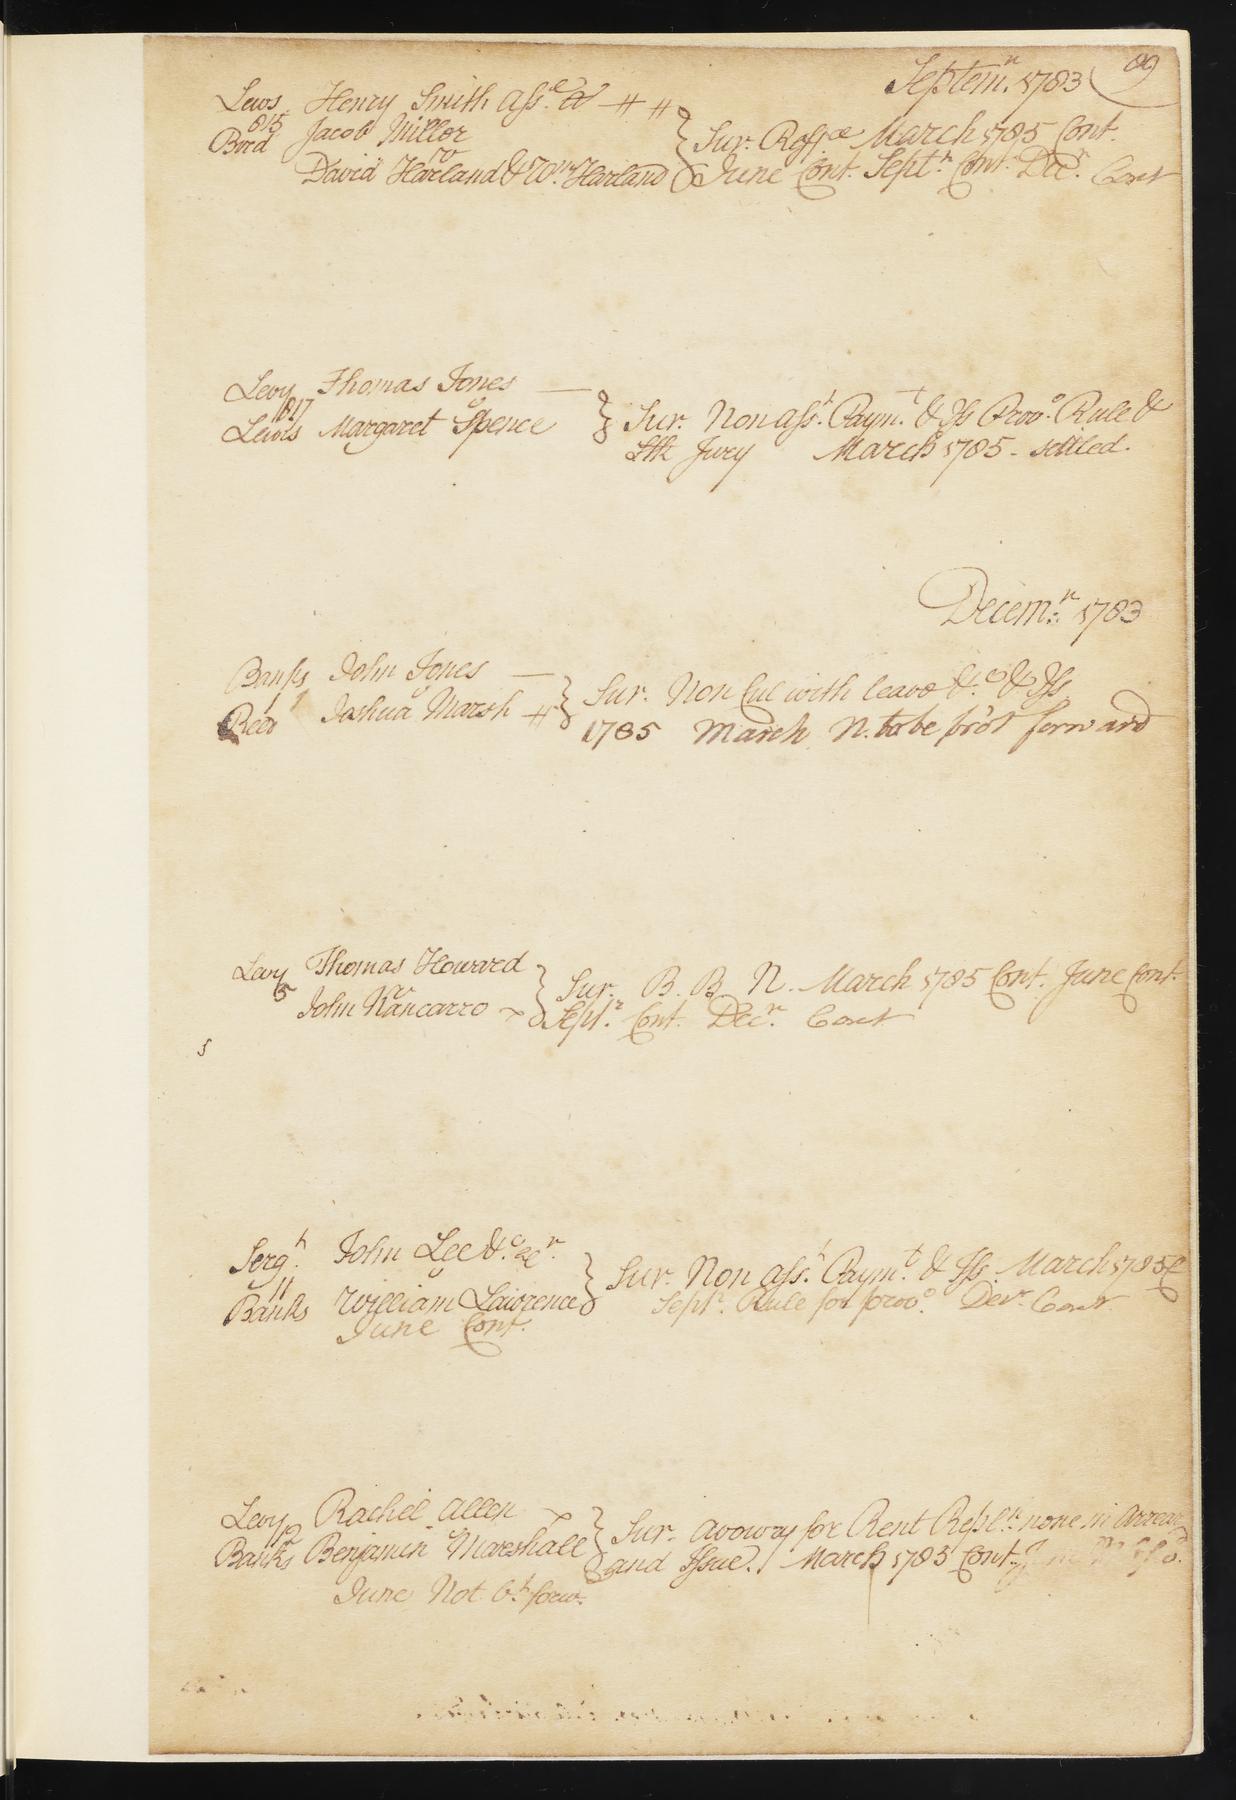 Septem.r 1783
Lews Henry Smith Ass.e &
Jacob Miller
v
David Harland & Wm. Harland
Sur. March 1785 Cont.
June Cont. Sept.r Cont. Dec.r Cont
Levy Thomas Jones
v
Lewis Margaret Spence
Sur. Non Ass.t Paym.t & Iss Proo.o Rule &
Stk Jury March 1785 - settled.
Decem.r 1783
Banks John Jones
v
Joshua Marsh
Sur. Non Cul with leave &.c & Iss
1785 March N. to be bro't forward
Levy Thomas Howard
5 v
John Nancarro
Sur. B. B. N. March 1785 Cont. June Cont.
Sept.r Cont. Dec.r Cont
5
Serg.t John Lee &.c
11 v
Banks William Lawrence
Sur. Non Ass.t Paym.t & Iss. March 1785 C
Sept.r Rule for proo.o Dec.r Cont
June Cont.
Levy Rachel Allen
9 v
Banks Benjamin Marshall
Sur. Avowry for Rent Repl.n none in Arrear
and Issue. March 1785 Cont.
June Not b.t forw.